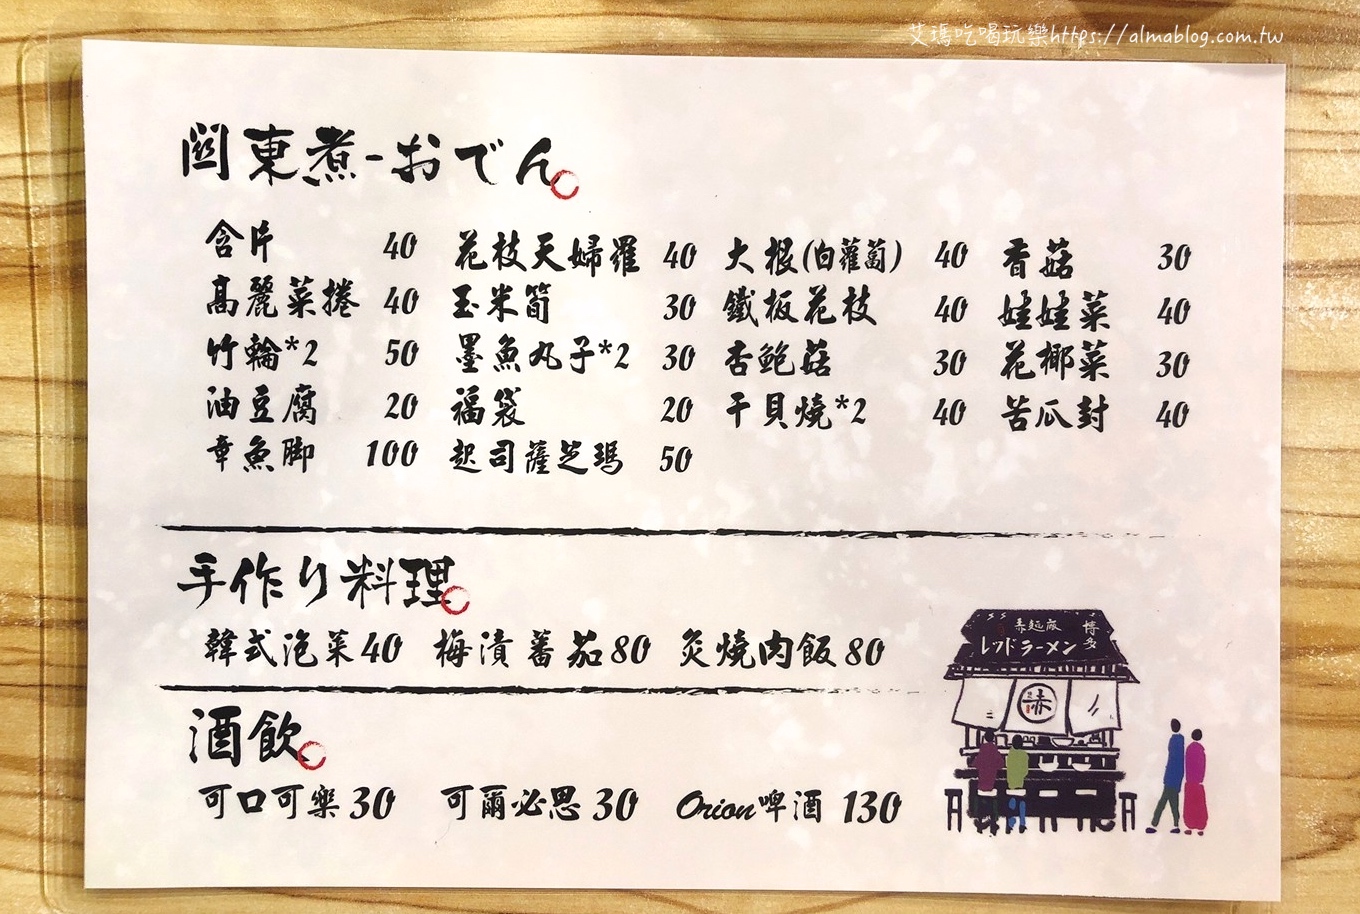 艾瑪吃喝玩樂https://almablog.com.tw
關東煮-おでん
含片 40 花枝天婦羅 40 大根(白蘿蔔) 40 香菇 30
高麗菜捲 40 玉米筍 30 鐵板花枝 40 娃娃菜 40
竹輪*2 50 墨魚丸子*2 30 杏鮑菇 30 花椰菜 30
油豆腐 20 福袋 20 干貝燒*2 40 苦瓜封 40
章魚脚 100 起司薩芝瑪 50
手作り料理
韓式泡菜40 梅漬蕃茄80 炙燒肉飯80
酒飲
可口可樂30 可爾必思30 Orion啤酒 130
赤麵廠 博多
レッドラーメン
赤